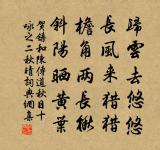 歸雲去悠悠
長風來獵獵
檐角兩長楸
斜陽晒黄葉
賀鑄和陳傳道秋日十
詠之二秋晴詞典網集